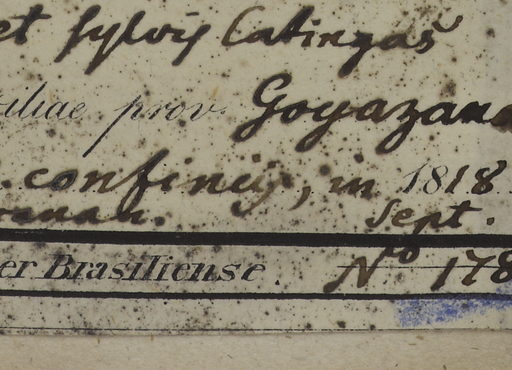 et sylvis Catingas
iliae prov. Goyazana
confiniis, in 1818
Sept.
er Brasiliense. No 178